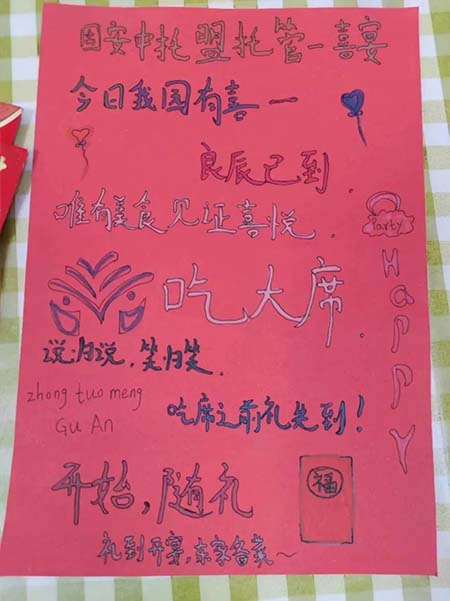 固安中托盟托管一喜宴
今日我园有喜一
良辰已到.
唯有美食见证喜悦.
Party
HAPPY
吃大席.
说归说,笑归笑.
zhong tuo meng
Gu An
吃席之前礼先到!
开始,随礼
福
礼到开宴,东家备桌~